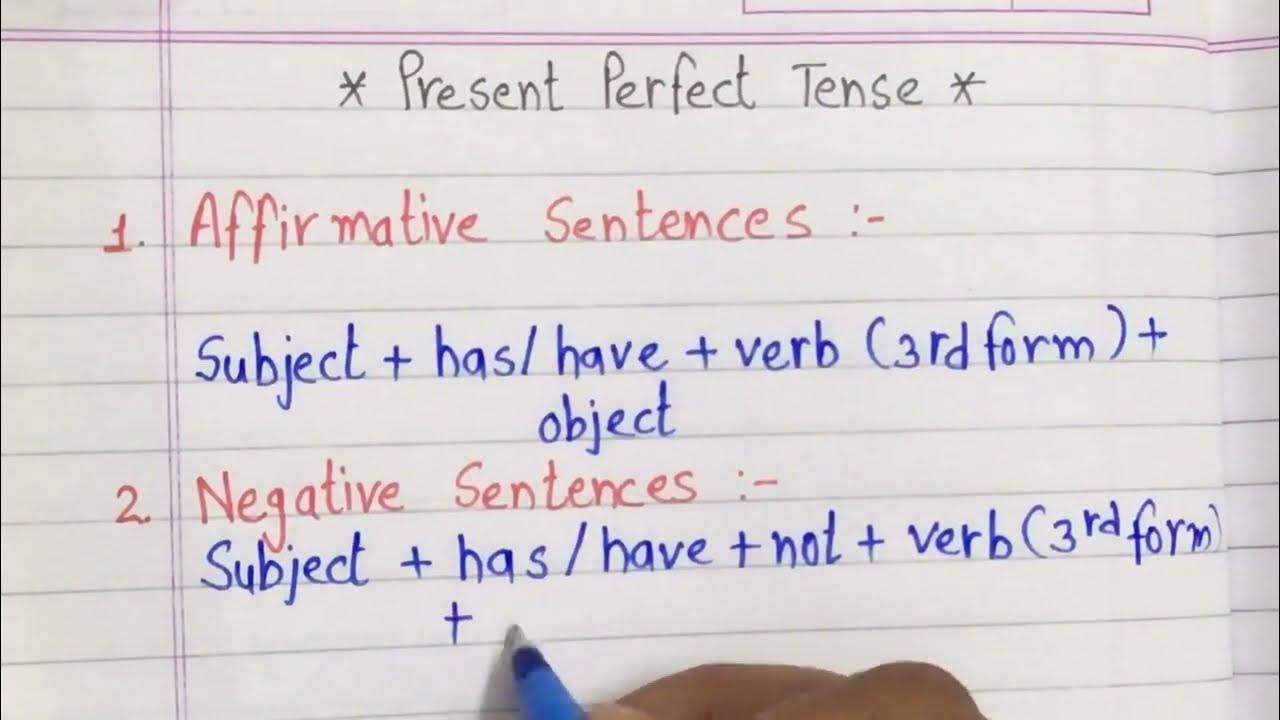 * Present Perfect Tense *
1. Affirmative Sentences :-
Subject + has/have + verb (3rd form) +
object
2. Negative Sentences :-
Subject + has/have + not + verb (3rd form)
+